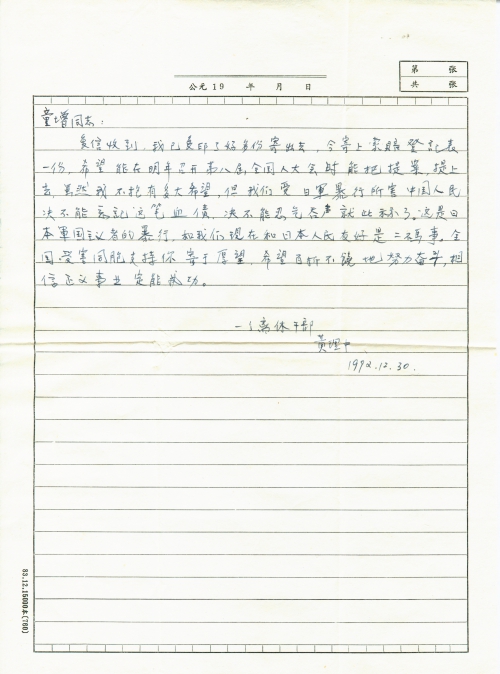 第 张
共 张
公元19 年 月 日
童增同志:
来信收到,我已复印了好多份寄出去,今寄上索赔登記表
一份,希望能在明年召开第八届全国人大会时能把提案,提上
去,虽然我不抱有多大希望,但我们受日軍暴行所害中国人民
决不能忘記这笔血债,决不能忍气吞声就此罢了。这是日
本軍国主义者的暴行,和我们现在和日本人民友好是二码事。全
国受害同胞支持你寄于厚望,希望百折不饶地努力奋斗,相
信正义事业定能成功。
一个离休干部
黄
1992.12.30.
83.12.15000本(760)